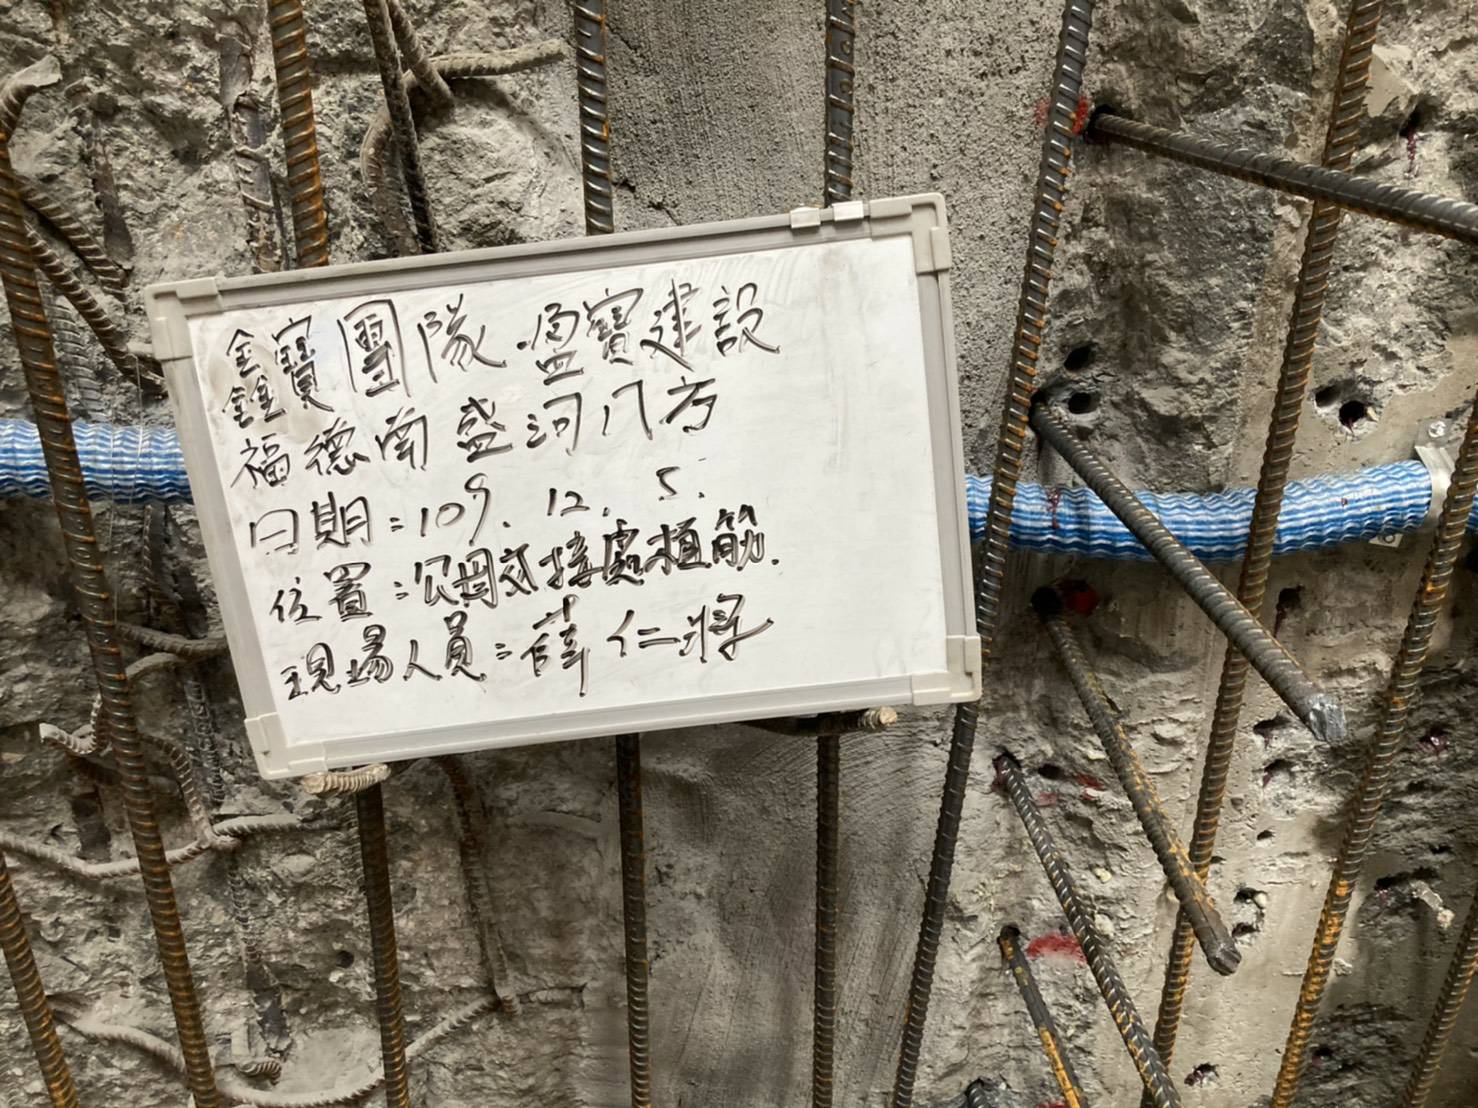 鑫寶團隊.盈寶建設
福德南盛河八方
日期:109.12.5.
位置:公母交接處植筋.
現場人員:薛仁將